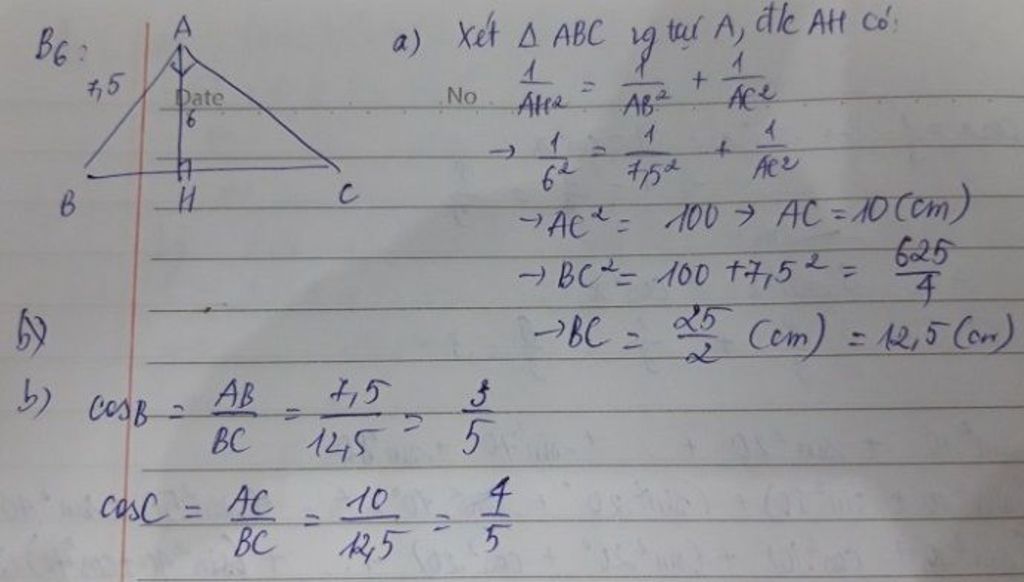 B6:
A
7,5
6
B
H
C
Date
No
a) Xét Δ ABC vg tại A, đ/c AH có:
1/AH² = 1/AB² + 1/AC²
→ 1/6² = 1/7,5² + 1/AC²
→ AC² = 100 → AC = 10 (cm)
→ BC² = 100 + 7,5² = 625/4
→ BC = 25/2 (cm) = 12,5 (cm)
b)
b) cosB = AB/BC = 7,5/12,5 = 3/5
cosC = AC/BC = 10/12,5 = 4/5